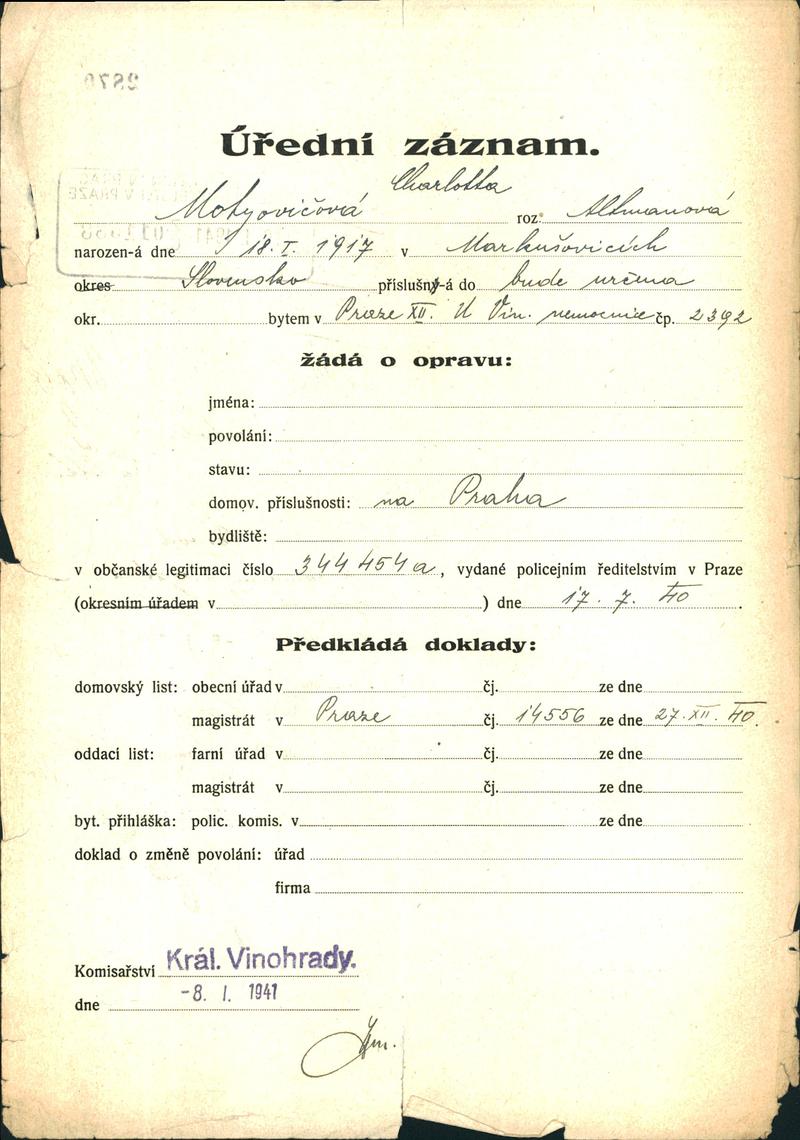 2870
Úřední záznam.
Charlotta
Motyovičová roz. Altmanová
narozen-á dne 18. I. 1917 v Markušovicích
okres Slovensko příslušný-á do bude určena
okr. bytem v Praze XII. U Vin. nemocnice čp. 2392
žádá o opravu:
jména:
povolání:
stavu:
domov. příslušnosti: na Praha
bydliště:
v občanské legitimaci číslo 344454a, vydané policejním ředitelstvím v Praze
(okresním úřadem v ) dne 17. 7. 40.
Předkládá doklady:
domovský list: obecní úřad v čj. ze dne
magistrát v Praze čj. 14556 ze dne 27. XII. 40.
oddací list: farní úřad v čj. ze dne
magistrát v čj. ze dne
byt. přihláška: polic. komis. v ze dne
doklad o změně povolání: úřad
firma
Komisařství Král. Vinohrady.
dne -8. I. 1941